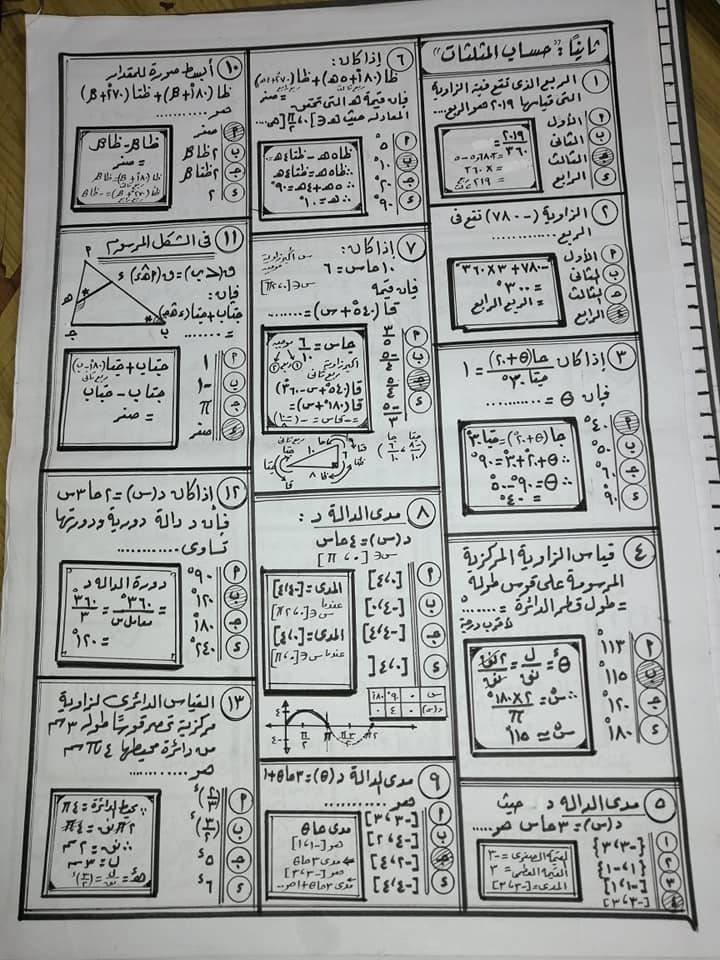 ثانيًا: "حساب المثلثات"
١ المربع الذى تقع فيه الزاوية
التى قياسها ٢٠١٩ هو الربع....
٢ الأول
ب الثانى
ج الثالث
د الرابع
٢٠١٩/٣٦٠ =
٢ الزاوية (-٧٨٠) تقع فى
الربع ..........
٢ الأول
ب الثانى
ج الثالث
د الرابع
-٧٨٠ + ٣ × ٣٦٠°
= ٣٠٠°
= الربع الرابع
٣ إذا كان حا(θ+٢٠)/حتا ٣٠° = ١
فإن θ = ..........
٢ ٤٠°
ب ٥٠°
ج ٦٠°
د ٩٠°
حا(θ+٢٠°) = حتا ٣٠
∴ θ+٢٠+٣٠ = ٩٠°
∴ θ = ٩٠ - ٥٠°
= ٤٠°
٤ قياس الزاوية المركزية
المرسومة على قوس طوله
= طول قطر الدائرة = ........°
لأقرب درجة
٢ ١١٣°
ب ١١٥°
ج ١٢٠°
د ١٨٠°
θء = ل/نق = ٢نق/نق
∴ س° = ٢×١٨٠°/π
س° = ١١٥
٥ مدى الدالة د حيث
د(س) = ٣حاس هو.....
١ {-٣، ٣}
٢ {-١، ١}
٣ [-١، ١]
٤ [-٣، ٣]
القيمة الصغرى = -٣
القيمة العظمى = ٣
المدى = [-٣، ٣]
٦ إذا كان:
ظا(١٨٠+٥ه) + ظا(٢٧٠+٤ه) = صفر
فإن قيمة ه التى تحقق
المعادلة حيث ه ∈ ]٠، π/٢[ هى....
٢ ٥°
ب ١٠°
ج ٢٠°
د ٩٠°
ظا٥ه - ظتا٤ه
∴ ظا٥ه = ظتا٤ه
∴ ٥ه + ٤ه = ٩٠°
∴ ه = ١٠°
٧ إذا كان:
١٠حاس = ٦
س أكبر زاوية موجبة
س ∈ ]٠، ٢π[
فإن قيمة
قا(٥٤٠+س) = .......
٢ ٣/٥
ب -٤/٥
ج ٥/٤
د -٥/٣
حاس = ٦/١٠ موجبة
أكبر زاوية
ربع ثانى
قا(٥٤٠+س-٣٦٠°)
قا(١٨٠+س) =
٨ مدى الدالة د:
د(س) = ٤حاس
س ∈ [٠، π]
٢ [٠، ٤]
ب [-٤، ٠]
ج [-٤، ٤]
د ]٠، ٤[
المدى = [-٤، ٤]
عندما
س ∈ [٠، ٢π]
المدى = [٠، ٤]
عندما س ∈ [٠، π]
س ٠ ٩٠° ١٨٠
د(س) ٠ ٤ ٠
٩ مدى الدالة د(θ) = ٣حاθ+١
هو ..........
٢ [-٣، ٣]
ب [-٢، ٤]
ج [-٢، ٤]
د [-٤، ٤]
مدى حاθ
هو [-١، ١]
مدى ٣حاθ
هو [-٣، ٣]
مدى ٣حاθ+١ هو...
١٠ أبسط صورة للمقدار
ظا(١٨٠+θ) + ظتا(٢٧٠+θ)
هو ..........
٢ صفر
ب ٢ظاθ
ج ٢ظتاθ
د ٢
ظاθ - ظاθ
= صفر
١١ فى الشكل المرسوم
فإن:
= ......
٢ ١
ب -١
ج π
د صفر
حتاب + حتا(١٨٠-ب)
ربع ثانى
حتاب - حتاب
= صفر
١٢ إذا كان د(س) = ٢حا٣س
فإن د دالة دورية ودورتها
تساوى ..........
٢ ٩٠°
ب ١٢٠°
ج ١٨٠°
د ٢٤٠°
دورة الدالة د
= ٣٦٠°/معامل س = ٣٦٠°/٣
= ١٢٠°
١٣ القياس الدائرى لزاوية
مركزية تحصر قوسًا طوله ٣سم
من دائرة محيطها ٤π سم
هو ..........
٢ (٢/٣)ء
ب (٣/٢)ء
ج ٥ء
د ٦ء
∵ محيط الدائرة = ٤π
٢π نق = ٤π
∴ نق = ٢سم
ل = ٣سم
هء = ل/نق = (٣/٢)ء